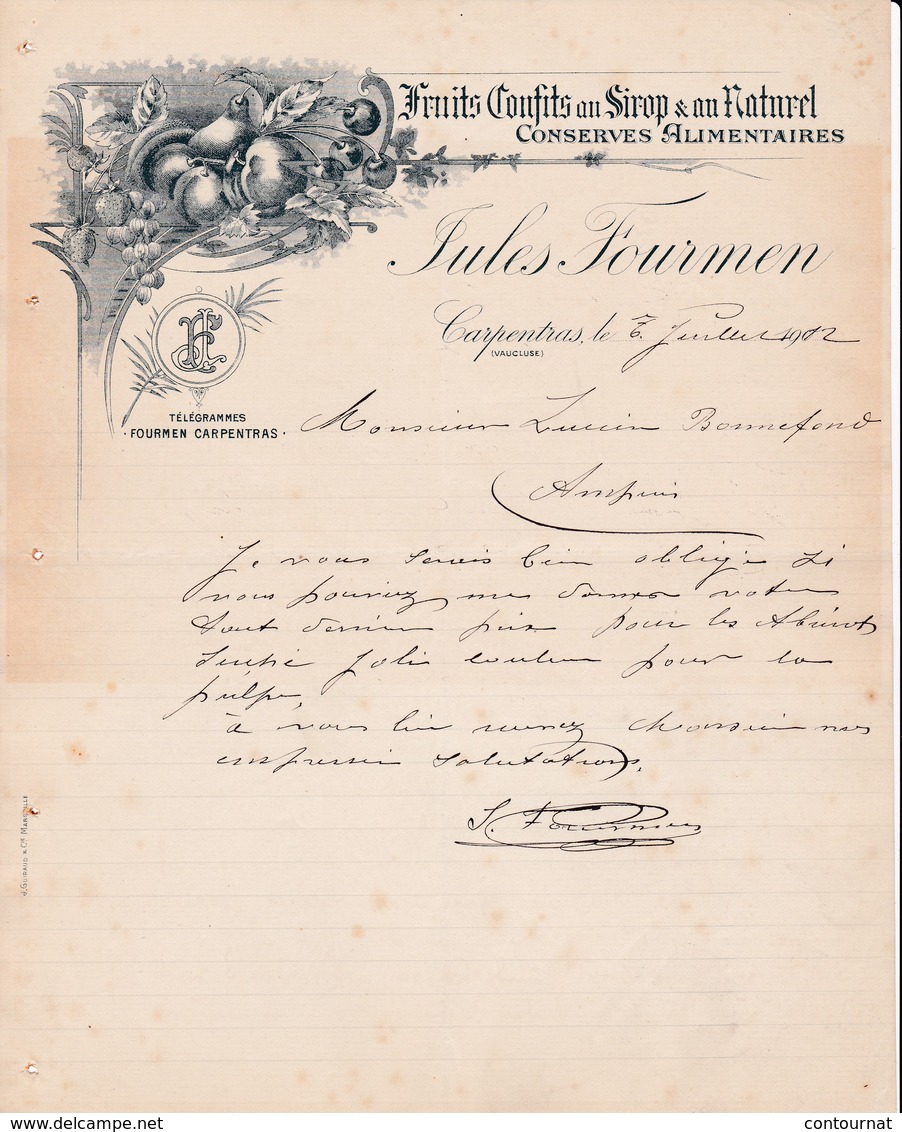 Fruits Confits au Sirop & au Naturel
CONSERVES ALIMENTAIRES
Jules Fourmen
Carpentras, le 6 Juillet 1902
(VAUCLUSE)
JF
TÉLÉGRAMMES
· FOURMEN CARPENTRAS ·
Monsieur Lucien Bonnefond
Ampuis
Je vous serais bien obligé si
vous pouviez me donner votre
tout dernier prix pour les Abricots
jolie couleur pour la
pulpe,
à vous lire Monsieur mes
empressées salutations.
J. Fourmen
J. GUIRAUD & Cie MARSEILLE
www.delcampe.net
contournat